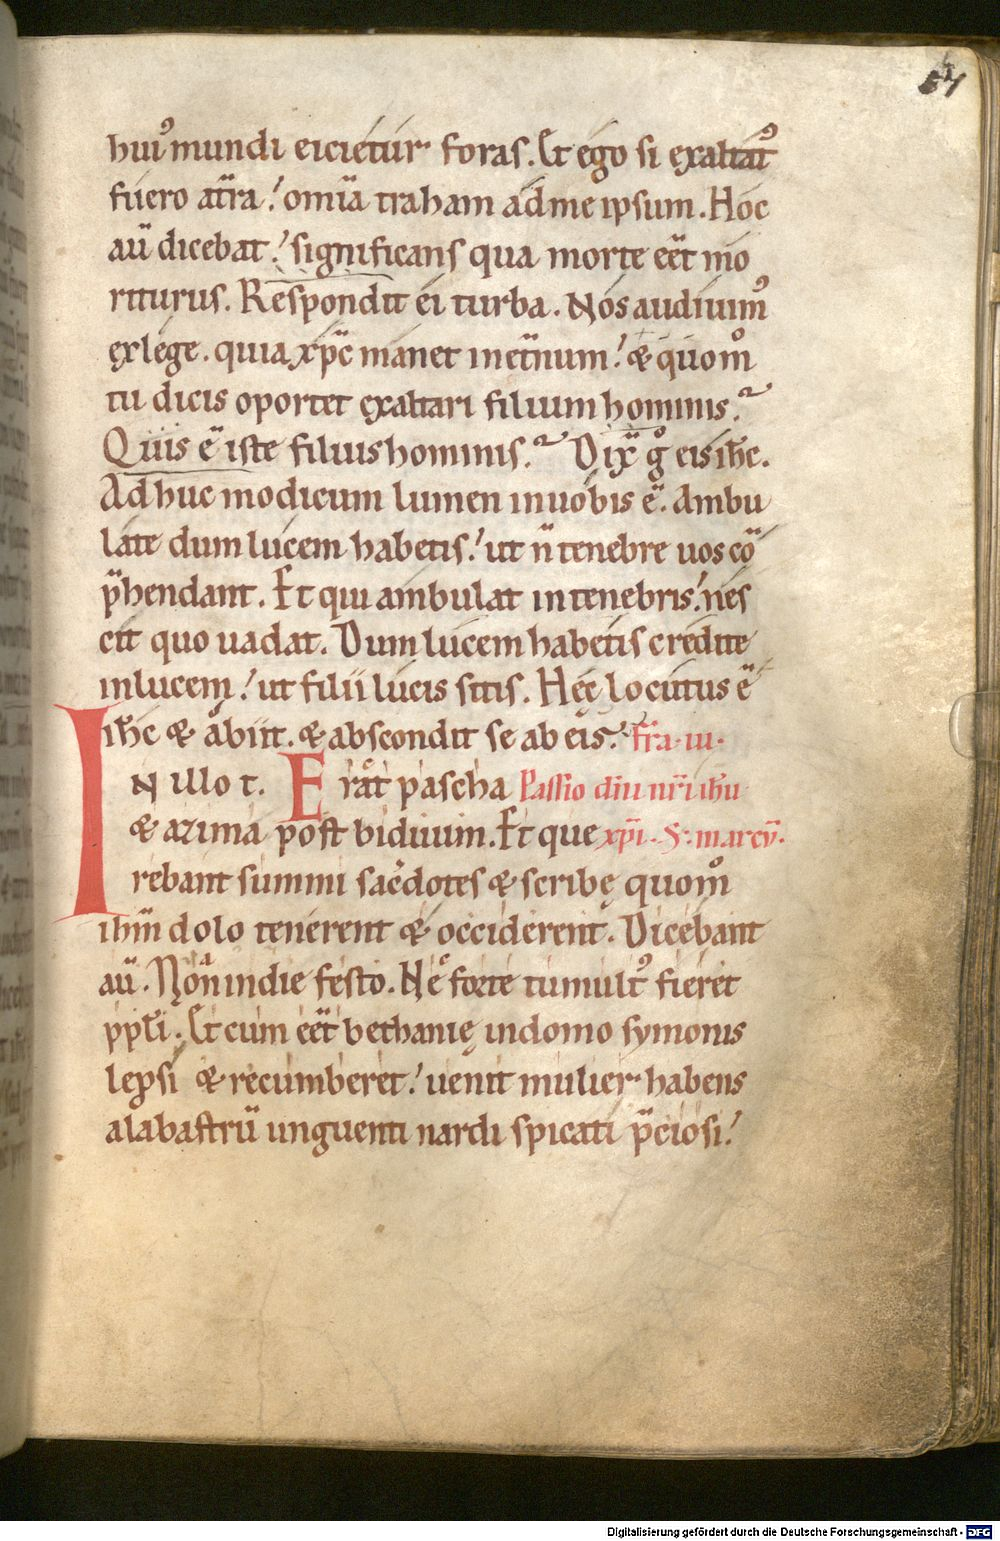 57
huiꝰ mundi eicietur foras. Et ego si exaltat᷒
fuero at̄ra! om̄ia traham ad me ipsum. Hoc
aū dicebat! significans qua morte eēt mo
riturus. Respondit ei turba. Nos audiuim᷒
ex lege. quia xp̄c manet inet̄num! & quom̊
tu dicis oportet exaltari filium hominis.
Quis ē iste filius hominis. Dix̄ g̊ eis ih̄c.
Adhuc modicum lumen inuobis ē. Ambu
late dum lucem habetis! ut n̄ tenebre uos cō
p̄hendant. Et qui ambulat intenebris! nes
cit quo uadat. Dum lucem habetis credite
inlucem! ut filii lucis sitis. Hęc locutus ē
ih̄c & abiit. & abscondit se ab eis. fr̄a. iii.
IN illo t. Erat pascha Passio dn̄i nr̄i ih̄u
& azima post biduum. Et que xp̄i. S. marcū.
rebant summi sac̄dotes & scribę quom̊
ih̄m dolo tenerent & occiderent. Dicebant
aū. Non indie festo. Ne forte tumult᷒ fieret
ppl̄i. Et cum eēt bethanię indomo symonis
lep̄si & recumberet! uenit mulier habens
alabastrū unguenti nardi spicati p̄ciosi!
Digitalisierung gefördert durch die Deutsche Forschungsgemeinschaft - DFG